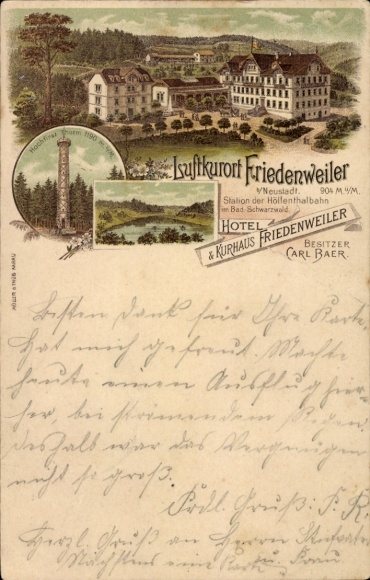 Hochfirst Thurm 1190 m ü/M.
Luftkurort Friedenweiler
b/Neustadt. 904 M. ü/M.
Station der Höllenthalbahn
im Bad. Schwarzwald.
HOTEL
& KURHAUS FRIEDENWEILER
BESITZER
CARL BAER.
Besten Dank für Ihre Karte.
Hat mich gefreut. Machte
heute einen Ausflug hier-
her, bei strömendem Regen,
deshalb war das Vergnügen
nicht so groß.
Frdl. Gruß: F. R.
Herzl. Gruß an Herrn
Nächstens eine Karte u. Frau.